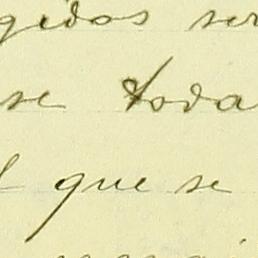 gidos ser
se toda
l que se